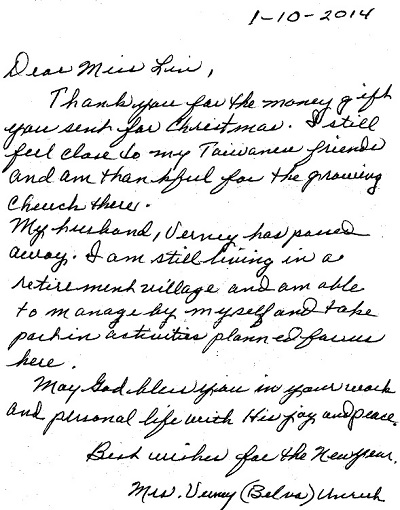 1-10-2014
Dear Miss Lin,
Thank you for the money gift
you sent for Christmas. I still
feel close to my Taiwanese friends
and am thankful for the growing
church there.
My husband, Verney has passed
away. I am still living in a
retirement village and am able
to manage by myself and take
part in activities planned for us
here.
May God bless you in your work
and personal life with His joy and peace.
Best wishes for the New Year.
Mrs. Verney (Belva) Unruh